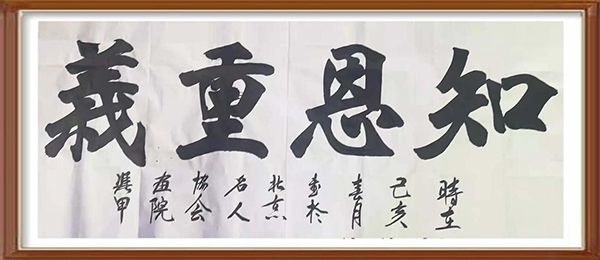 知恩重義
時在
己亥
春月
書於
北京
名人
協会
画院
甲